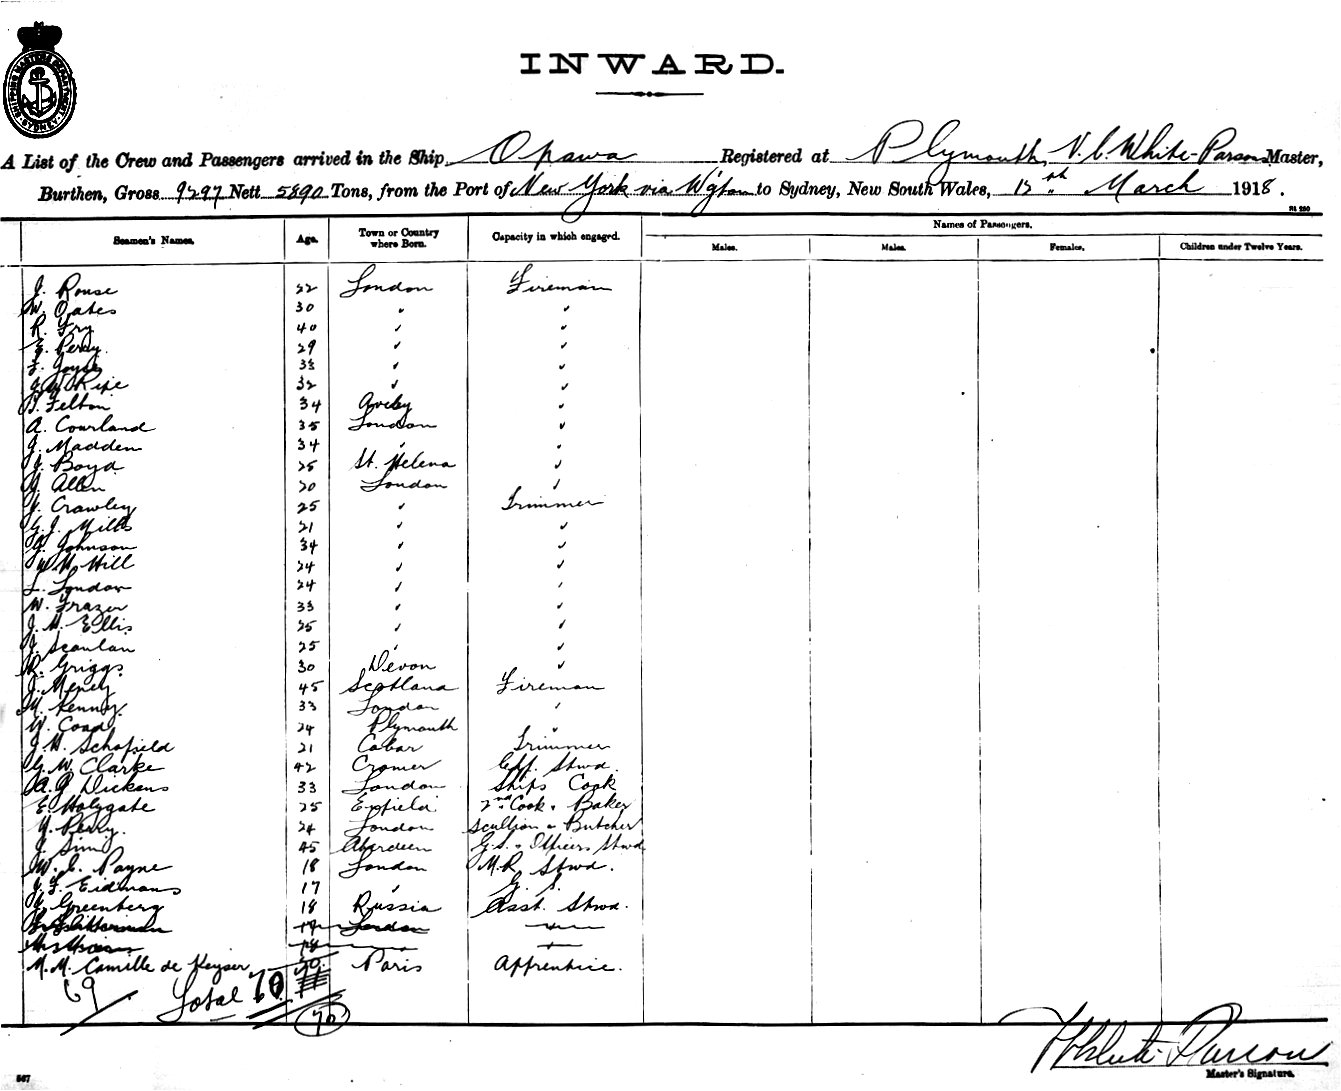 SHIPPING MASTERS DEPARTMENT SYDNEY
INWARD.
A List of the Crew and Passengers arrived in the Ship, Opawa Registered at Plymouth, V. C. White-Parsons Master,
Burthen, Gross 9297 Nett 5890 Tons, from the Port of New York via W'gton to Sydney, New South Wales, 12th March 1918.
R1 250
Names of Passengers.
Seamen's Names. Age. Town or Country where Born. Capacity in which engaged. Males. Males. Females. Children under Twelve Years.
J. Rouse 22 London Fireman
W. Oates 30 " "
R. Fry 40 " "
E. Percy 29 " "
F. Joyce 33 " "
Ripe 32 " "
Felton 34 Aveley "
A. Courland 35 London "
J. Madden 34 " "
J. Boyd 25 St. Helena "
Allen 20 London "
J. Crawley 25 " Trimmer
G. J. Mills 21 " "
Johnson 34 " "
W. H. Hill 24 " "
L. London 24 " "
W. Frazer 33 " "
J. H. Ellis 25 " "
J. Scanlan 25 " "
R. Griggs 30 Devon "
J. 45 Scotland Fireman
M. Kenny 33 London "
W. Coad 24 Plymouth "
J. H. Schofield 21 Cobar Trimmer
G. W. Clarke 42 Cromer Chf. Stwd.
A. G. Dickens 33 London Ships Cook
E. Holygate 25 Enfield 2nd Cook & Baker
Y. Perry. 24 London Scullion & Butcher
J. Sim 45 Aberdeen G.S. & Officers Stwd
W. E. Payne 18 London M.R. Stwd.
J. F. Eidmans 17 " G. S.
Greenberg 18 Russia Asst. Stwd.
19 London "
18
M. M. Camille de Keyser 20 Paris Apprentice.
69 Total 70
70
White-Parsons
Master's Signature.
567